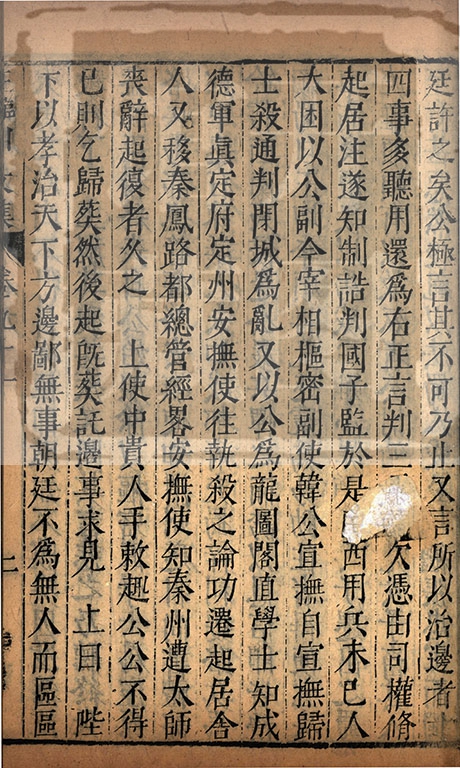 廷許之矣公極言其不可乃止又言所以治邊者十
四事多聽用還爲右正言判三欠憑由司權脩
起居注遂知制誥判國子監於是西用兵未已人
大困以公副今宰相樞密副使韓公宣撫自宣撫歸
士殺通判閉城爲亂又以公爲龍圖閣直學士知成
德軍眞定府定州安撫使往執殺之論功遷起居舍
人又移秦鳳路都總管經畧安撫使知秦州遭太師
喪辭起復者久之 上使中貴人手敕趣公公不得
已則乞歸葬然後起旣葬託邊事求見 上曰 陛
下以孝治天下方邊鄙無事朝廷不爲無人而區區
文集 卷九十一